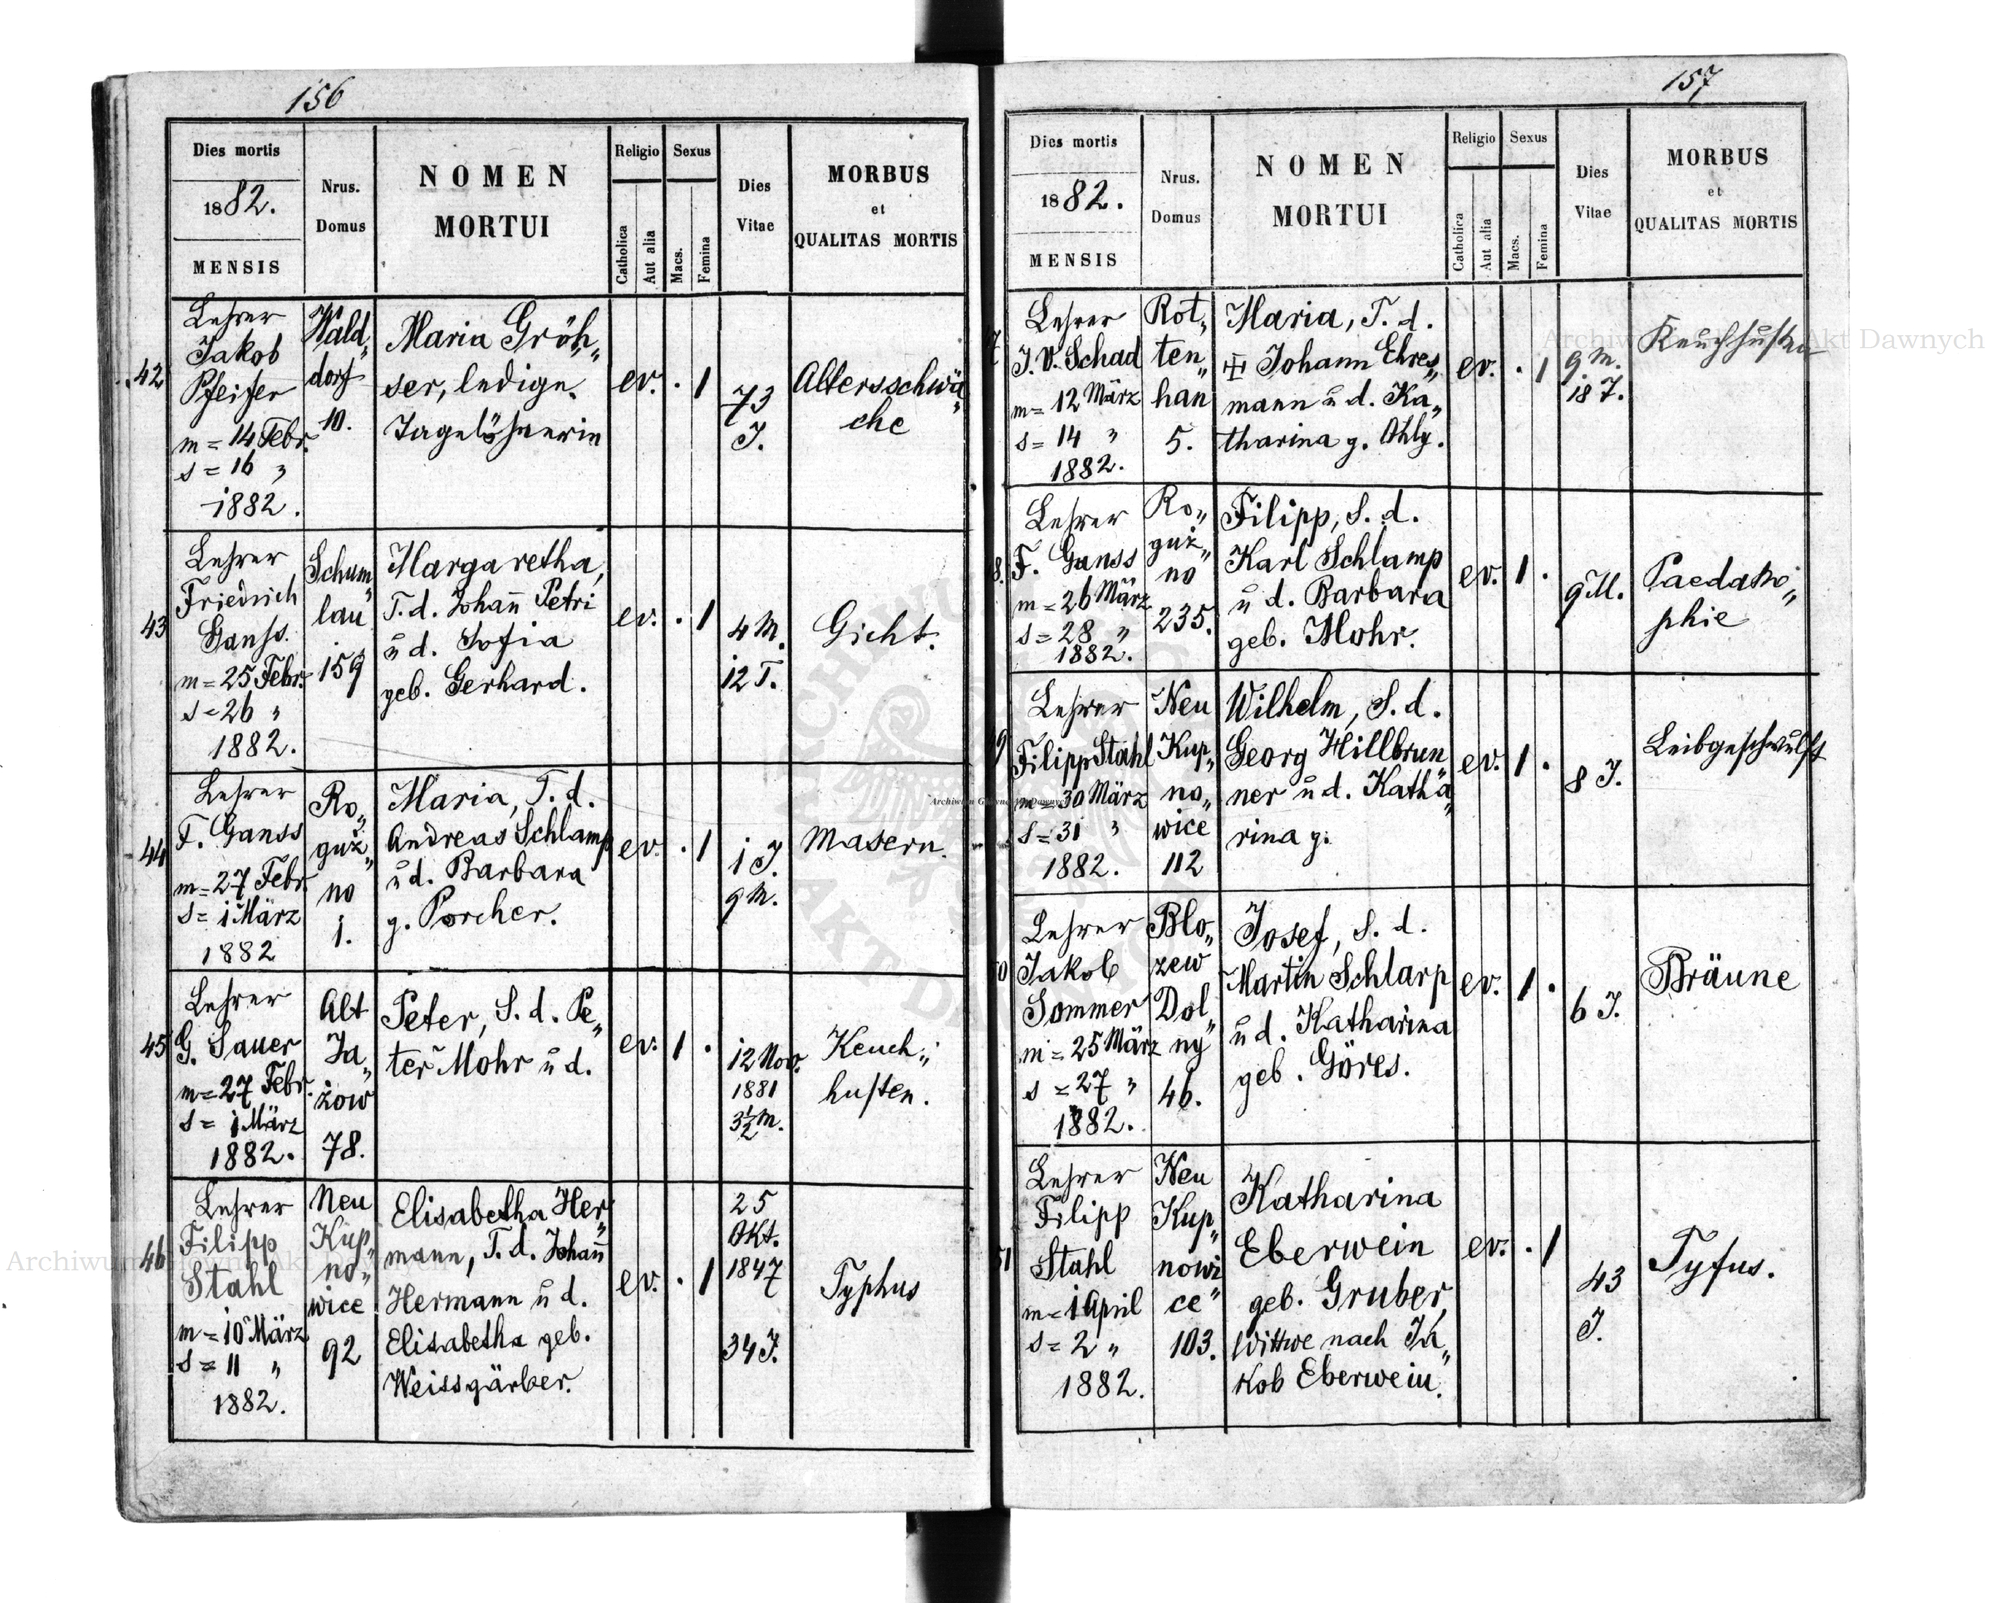 156
Dies mortis
1882.
MENSIS
Nrus.
Domus
NOMEN
MORTUI
Religio
Catholica
Aut alia
Sexus
Macs.
Femina
Dies
Vitae
MORBUS
et
QUALITAS MORTIS
42
Lehrer
Jakob
Pfeifer
m = 14 Febr.
s = 16 "
1882.
Wald„
dorf
10.
Maria Gröh„
ser, ledige
Tagelöhnerin
ev.
. 1
73
J.
Altersschwä„
che
43
Lehrer
Friedrich
Ganss.
m = 25 Febr.
s = 26 "
1882.
Schum„
lau
159
Margaretha,
T. d. Johan̄ Petri
u d. Sofia
geb. Gerhard.
ev.
. 1
4 M.
12 T.
Gicht.
44
Lehrer
F. Ganss
m = 27 Febr.
s = 1 März
1882
Ro„
guź„
no
1.
Maria, T. d.
Andreas Schlamp
u d. Barbara
g. Porcher.
ev.
. 1
1 J.
9 M.
Masern.
45
Lehrer
G. Sauer
m = 27 Febr.
s = 1 März
1882.
Alt
Ja„
żow
78.
Peter, S. d. Pe„
ter Mohr u d.
ev.
1 .
12 Nov.
1881
3½ M.
Keuch„
husten.
46
Lehrer
Filipp
Stahl
m = 10 März
s = 11 "
1882.
Neu
Kup„
no„
wice
92
Elisabetha Her„
mann, T. d. Johan̄
Hermann u d.
Elisabetha geb.
Weissgärber.
ev.
. 1
25
Okt.
1847
34 J.
Typhus
157
Dies mortis
1882.
MENSIS
Nrus.
Domus
NOMEN
MORTUI
Religio
Catholica
Aut alia
Sexus
Macs.
Femina
Dies
Vitae
MORBUS
et
QUALITAS MORTIS
7
Lehrer
J. V. Schad
m = 12 März
s = 14 "
1882.
Rot„
ten„
han
5.
Maria, T. d.
Johann Ehres„
mann u d. Ka„
tharina g. Ohly.
ev.
. 1
9 M.
18 T.
Keuchhusten
8.
Lehrer
F. Ganss
m = 26 März
s = 28 "
1882.
Ro„
guź„
no
235.
Filipp, S. d.
Karl Schlamp
u d. Barbara
geb. Mohr.
ev.
1 .
9 M.
Paedatro„
phie
9
Lehrer
Filipp Stahl
m = 30 März
s = 31 "
1882.
Neu
Kup„
no„
wice
112
Wilhelm, S. d.
Georg Hillbrun„
ner u d. Katha„
rina g.
ev.
1 .
8 J.
Leibgeschwulst
0
Lehrer
Jakob
Sommer
m = 25 März
s = 27 "
1882.
Blo„
zew
Dol„
ny
46.
Josef, S. d.
Martin Schlarp
u d. Katharina
geb. Göres.
ev.
1 .
6 J.
Bräune
51
Lehrer
Filipp
Stahl
m = 1 April
s = 2 "
1882.
Neu
Kup„
nowi„
ce
103.
Katharina
Eberwein
geb. Gruber,
Wittwe nach Ja„
kob Eberwein.
ev.
. 1
43
J.
Tyfus.
Archiwum Główne Akt Dawnych